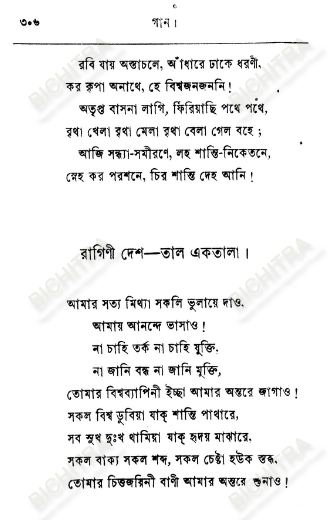 ৩০৬
গান।
রবি যায় অস্তাচলে, আঁধারে ঢাকে ধরণী,
কর কৃপা অনাথে, হে বিশ্বজনজননি!
অতৃপ্ত বাসনা লাগি, ফিরিয়াছি পথে পথে,
বৃথা খেলা বৃথা মেলা বৃথা বেলা গেল বহে;
আজি সন্ধ্যা-সমীরণে, লহ শান্তি-নিকেতনে,
স্নেহ কর পরশনে, চির শান্তি দেহ আনি!
রাগিণী দেশ—তাল একতালা।
আমার সত্য মিথ্যা সকলি ভুলায়ে দাও,
আমায় আনন্দে ভাসাও!
না চাহি তর্ক না চাহি যুক্তি,
না জানি বন্ধ না জানি মুক্তি,
তোমার বিশ্বব্যাপিনী ইচ্ছা আমার অন্তরে জাগাও!
সকল বিশ্ব ডুবিয়া যাক্ শান্তি পাথারে,
সব সুখ দুঃখ থামিয়া যাক্ হৃদয় মাঝারে,
সকল বাক্য সকল শব্দ, সকল চেষ্টা হউক স্তব্ধ,
তোমার চিত্তজয়িনী বাণী আমার অন্তরে শুনাও!
BICHITRA
BICHITRA
BICHITRA
BICHITRA
BICHITRA